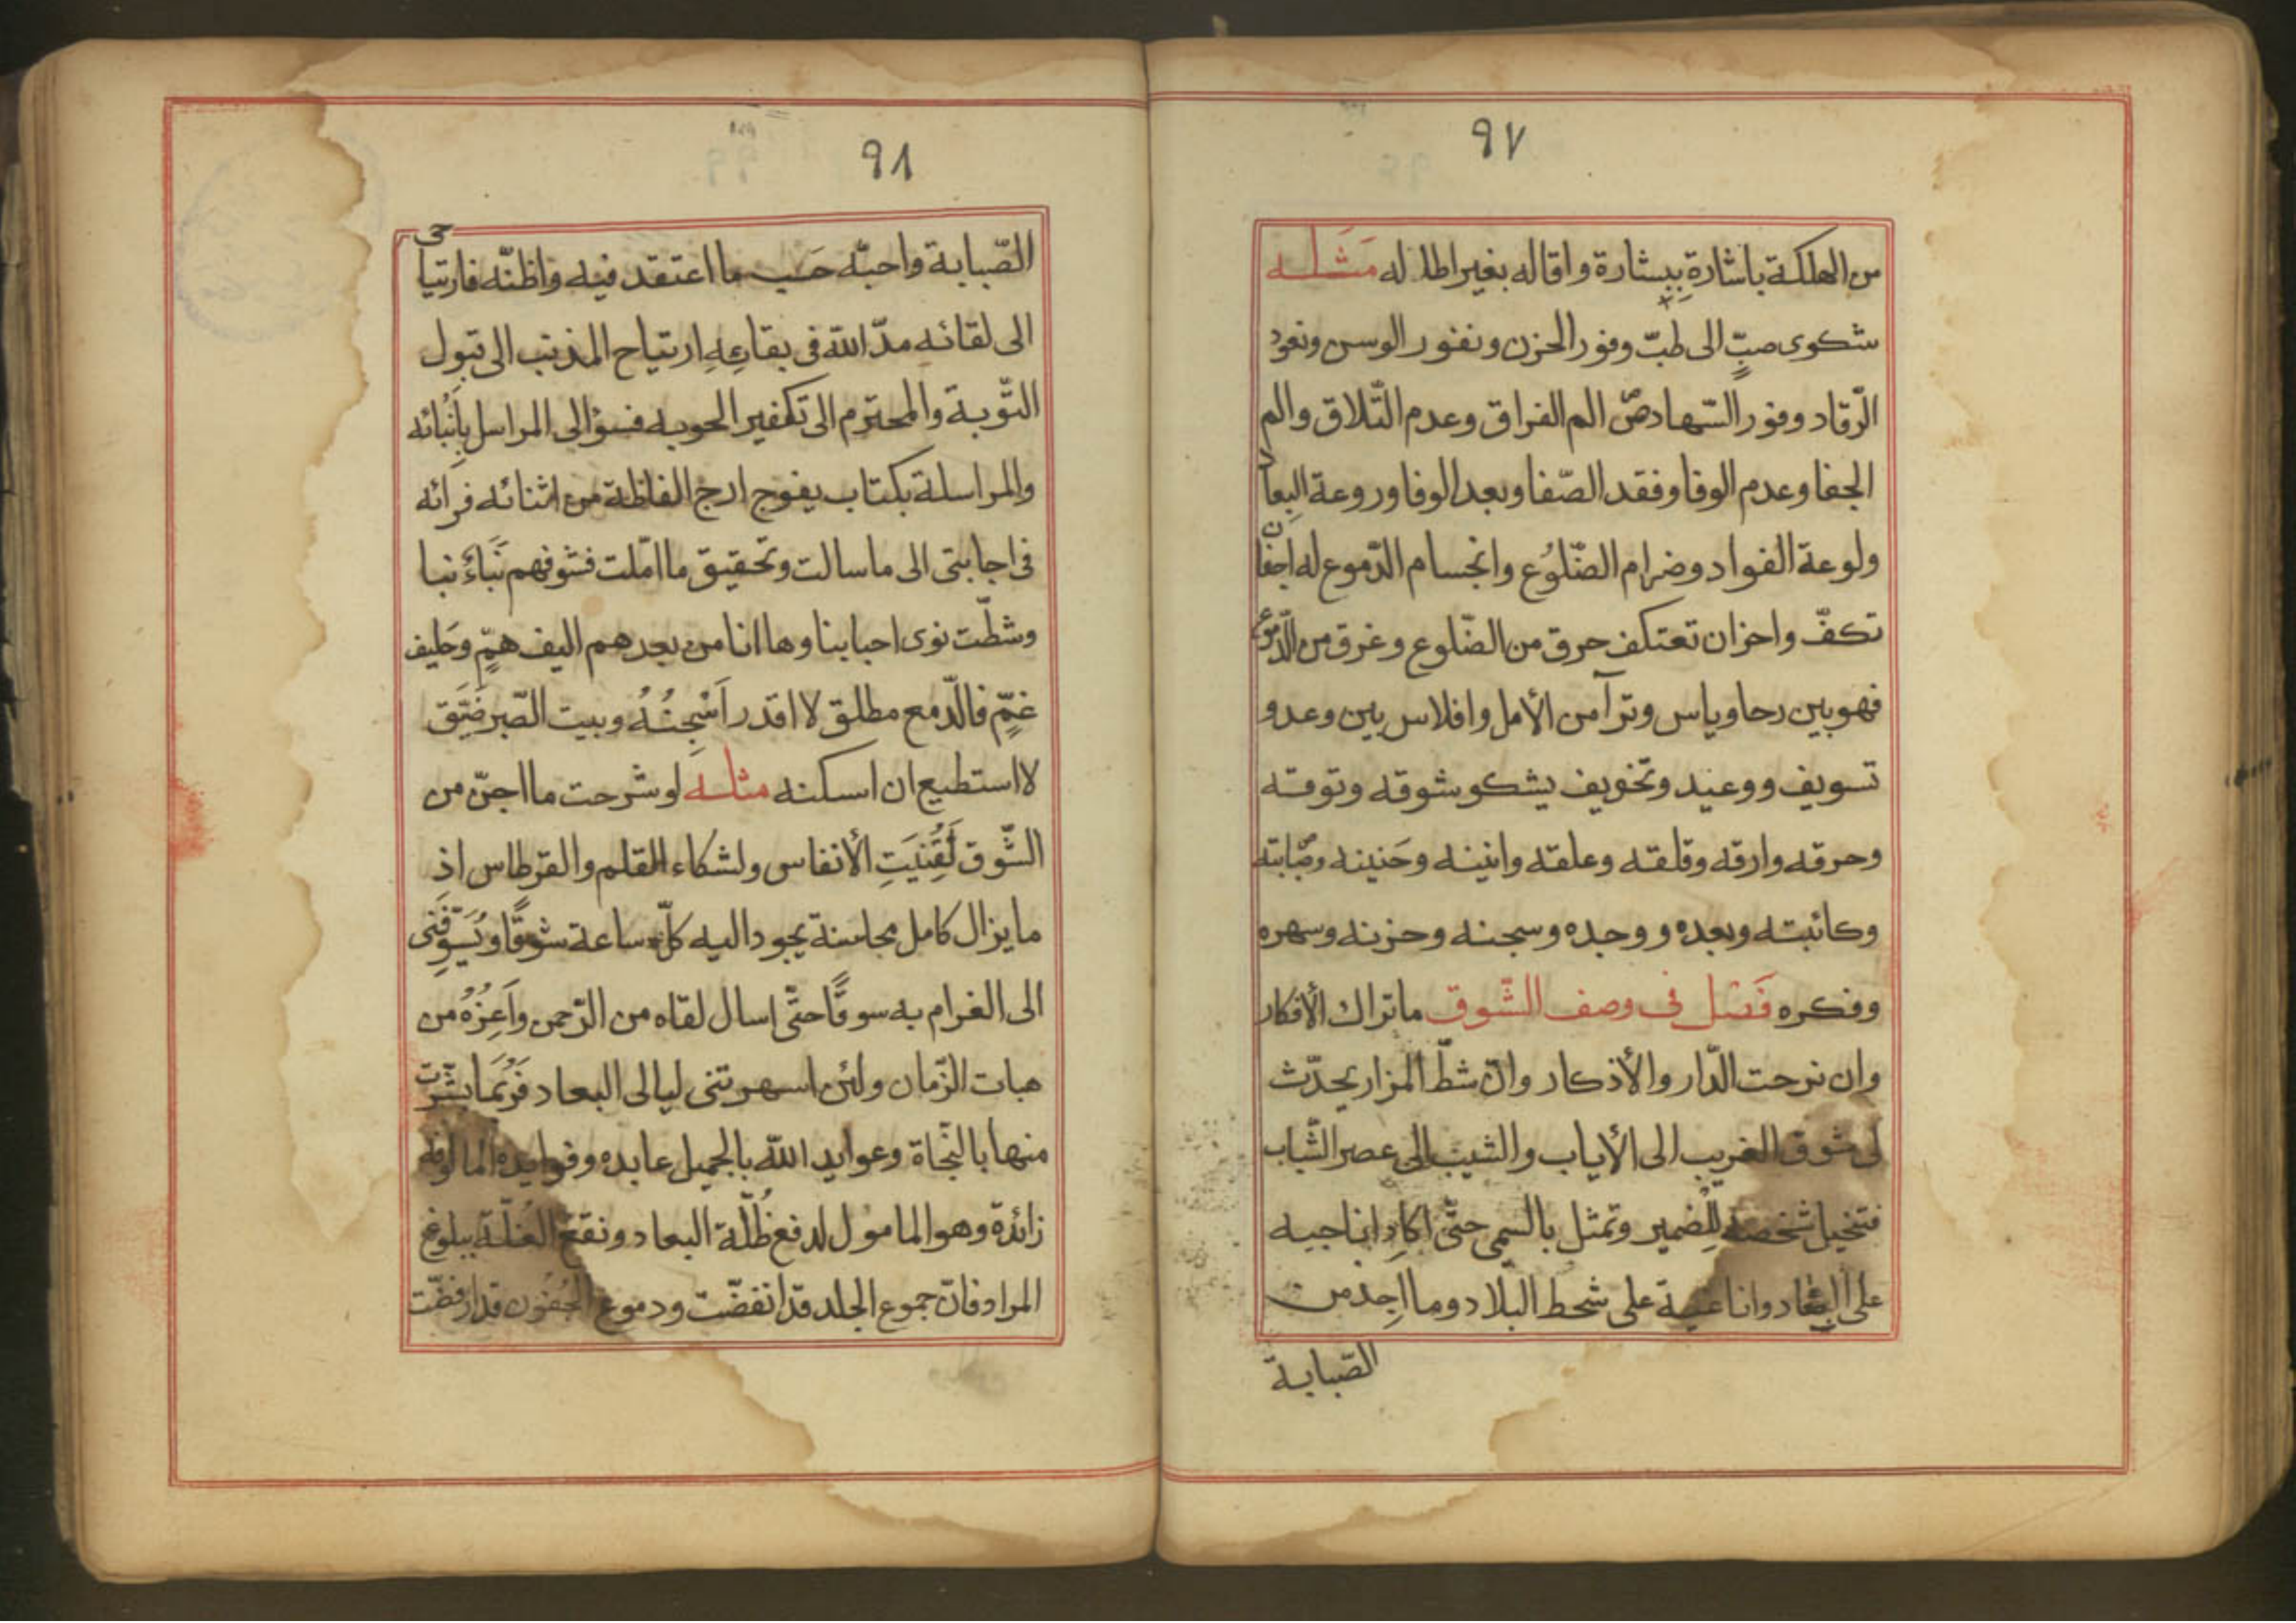 ٩٧
من الهلكة باشارةِ بِبشارة واقاله بغير اطاله مَثَله
شكوى صبٍّ الى طبّ وفور الحزن ونفور الوسن ونفود
الرّقاد ووفور السّهاد صّ الم الفراق وعدم التّلاق والم
الجفا وعدم الوفا وفقد الصّفا وبعد الوفا وروعة البِعاد
ولوعة الفواد وضرام الضّلُوع وانجسام الدّموع له اجفان
تكفّ واحزان تعتكف حرق من الضّلوع وغرق من الدّموع
فهو بين رحا وياس وترآمن الأمل وافلاس بين وعد و
تسويف ووعيد وتخويف يشكو شوقه وتوقه
وحرقه وارقه وقلقه وعلقه وانينه وحَنينه وصّبابته
وكائبته وبعده ووجده وسجنه وحزنه وسهره
وفكره فَصْل فى وصف الشّوق ماتراك الأفكار
وان نرحت الدّار والأذكار وانّ شطّ المزار يحدّث
لى شوق الغريب الى الأياب والشيب الى عصر الشّباب
فتخيل شخصه لِلضمير وتمثل بالسمى حتّى اكاد اناجيه
على البِعاد وانا على شحط البلاد وما اجِد من
الصّبابة
٩٨
الصّبابة واحبّه حَسب ما اعتقد فيه واظنّه فارتياحى
الى لقائه مدّ الله فى بقائِهِ ارتياح المذنب الى قبول
التّوبة والمحترم الى تكفير الحوبه فسؤالى المراسل بِاَنْبائه
والمراسلة بكتاب يفوج ارج الفاظة من اثنائه فرائه
فى اجابتى الى ما سالت وتحقيق ما امّلت فشوفهم نَبَاءُ نبا
وشطّت نوى احبابنا وها انا من بعدهم اليف همٍّ وحَليف
غمٍّ فالدّمع مطلق لا اقدر اَسْجِنُهُ وبيت الصّبر ضَيّق
لا استطيع ان اسكنه مثله لو شرحت ما اجنّ من
الشّوق لَفَنِيَتِ الأنفاس ولشكاء القلم والقرطاس اذِ
ما يزال كامل محاسنة يجود اليه كلّ ساعة شوقًا ويُسَوِّقَنى
الى الغرام به سوقًا حتّى اسال لقاه من الرّحمن واَعِزُهُ من
هبات الزّمان ولئن اسهرتنى ليالى البعاد فَرُبَمَا بشّرت
منها بالنّجاة وعوايد الله بالجميل عايده وفوايده
زائدة وهو المامول لدفع ظُلّة البعاد ونقع الغُلّة ببلوغ
المراد فانّ جموع الجلد قد انفضّت ودموع الجُفون قد ارفضّت